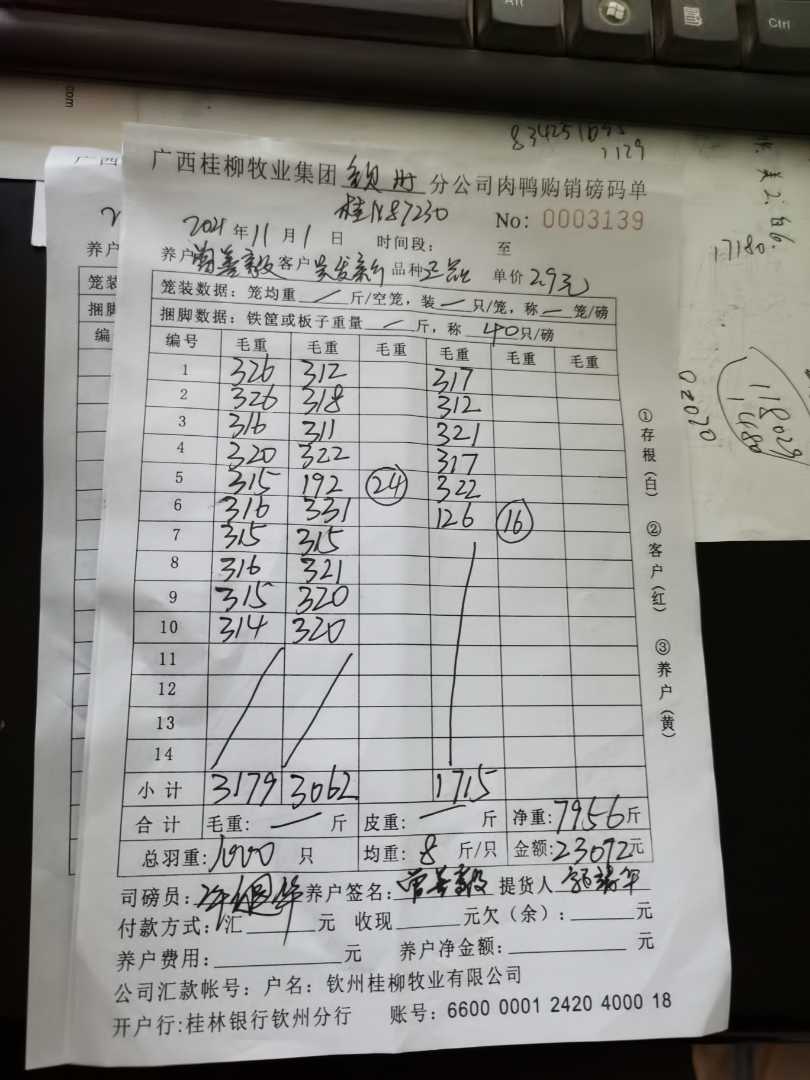 Alt
Ctrl
.com
8342510
1129
17180
02070
118029
1480
广西桂柳牧业集团 钦州 分公司肉鸭购销磅码单
桂N87230
No: 0003139
2021 年 11 月 1 日 时间段: 至
养户 曾善毅 客户 品种 正品 单价 2.9元
笼装数据: 笼均重 / 斤/空笼, 装 — 只/笼, 称 — 笼/磅
捆脚数据: 铁筐或板子重量 / 斤, 称 40 只/磅
编号 毛重 毛重 毛重 毛重 毛重 毛重
1 326 312 317
2 326 318 312
3 316 311 321
4 320 322 317
5 315 192 24 322
6 316 331 126 16
7 315 315
8 316 321
9 315 320
10 314 320
11
12
13
14
小计 3179 3062 1715
合计 毛重: — 斤 皮重: — 斤 净重: 7956 斤
总羽重: 1000 只 均重: 8 斤/只 金额: 23072 元
司磅员: 养户签名: 曾善毅 提货人
付款方式: 汇 元 收现 元欠(余): 元
养户费用: 元 养户净金额: 元
公司汇款帐号: 户名: 钦州桂柳牧业有限公司
开户行:桂林银行钦州分行 账号: 6600 0001 2420 4000 18
①存根(白) ②客户(红) ③养户(黄)
广西
养户
笼装
捆脚
编